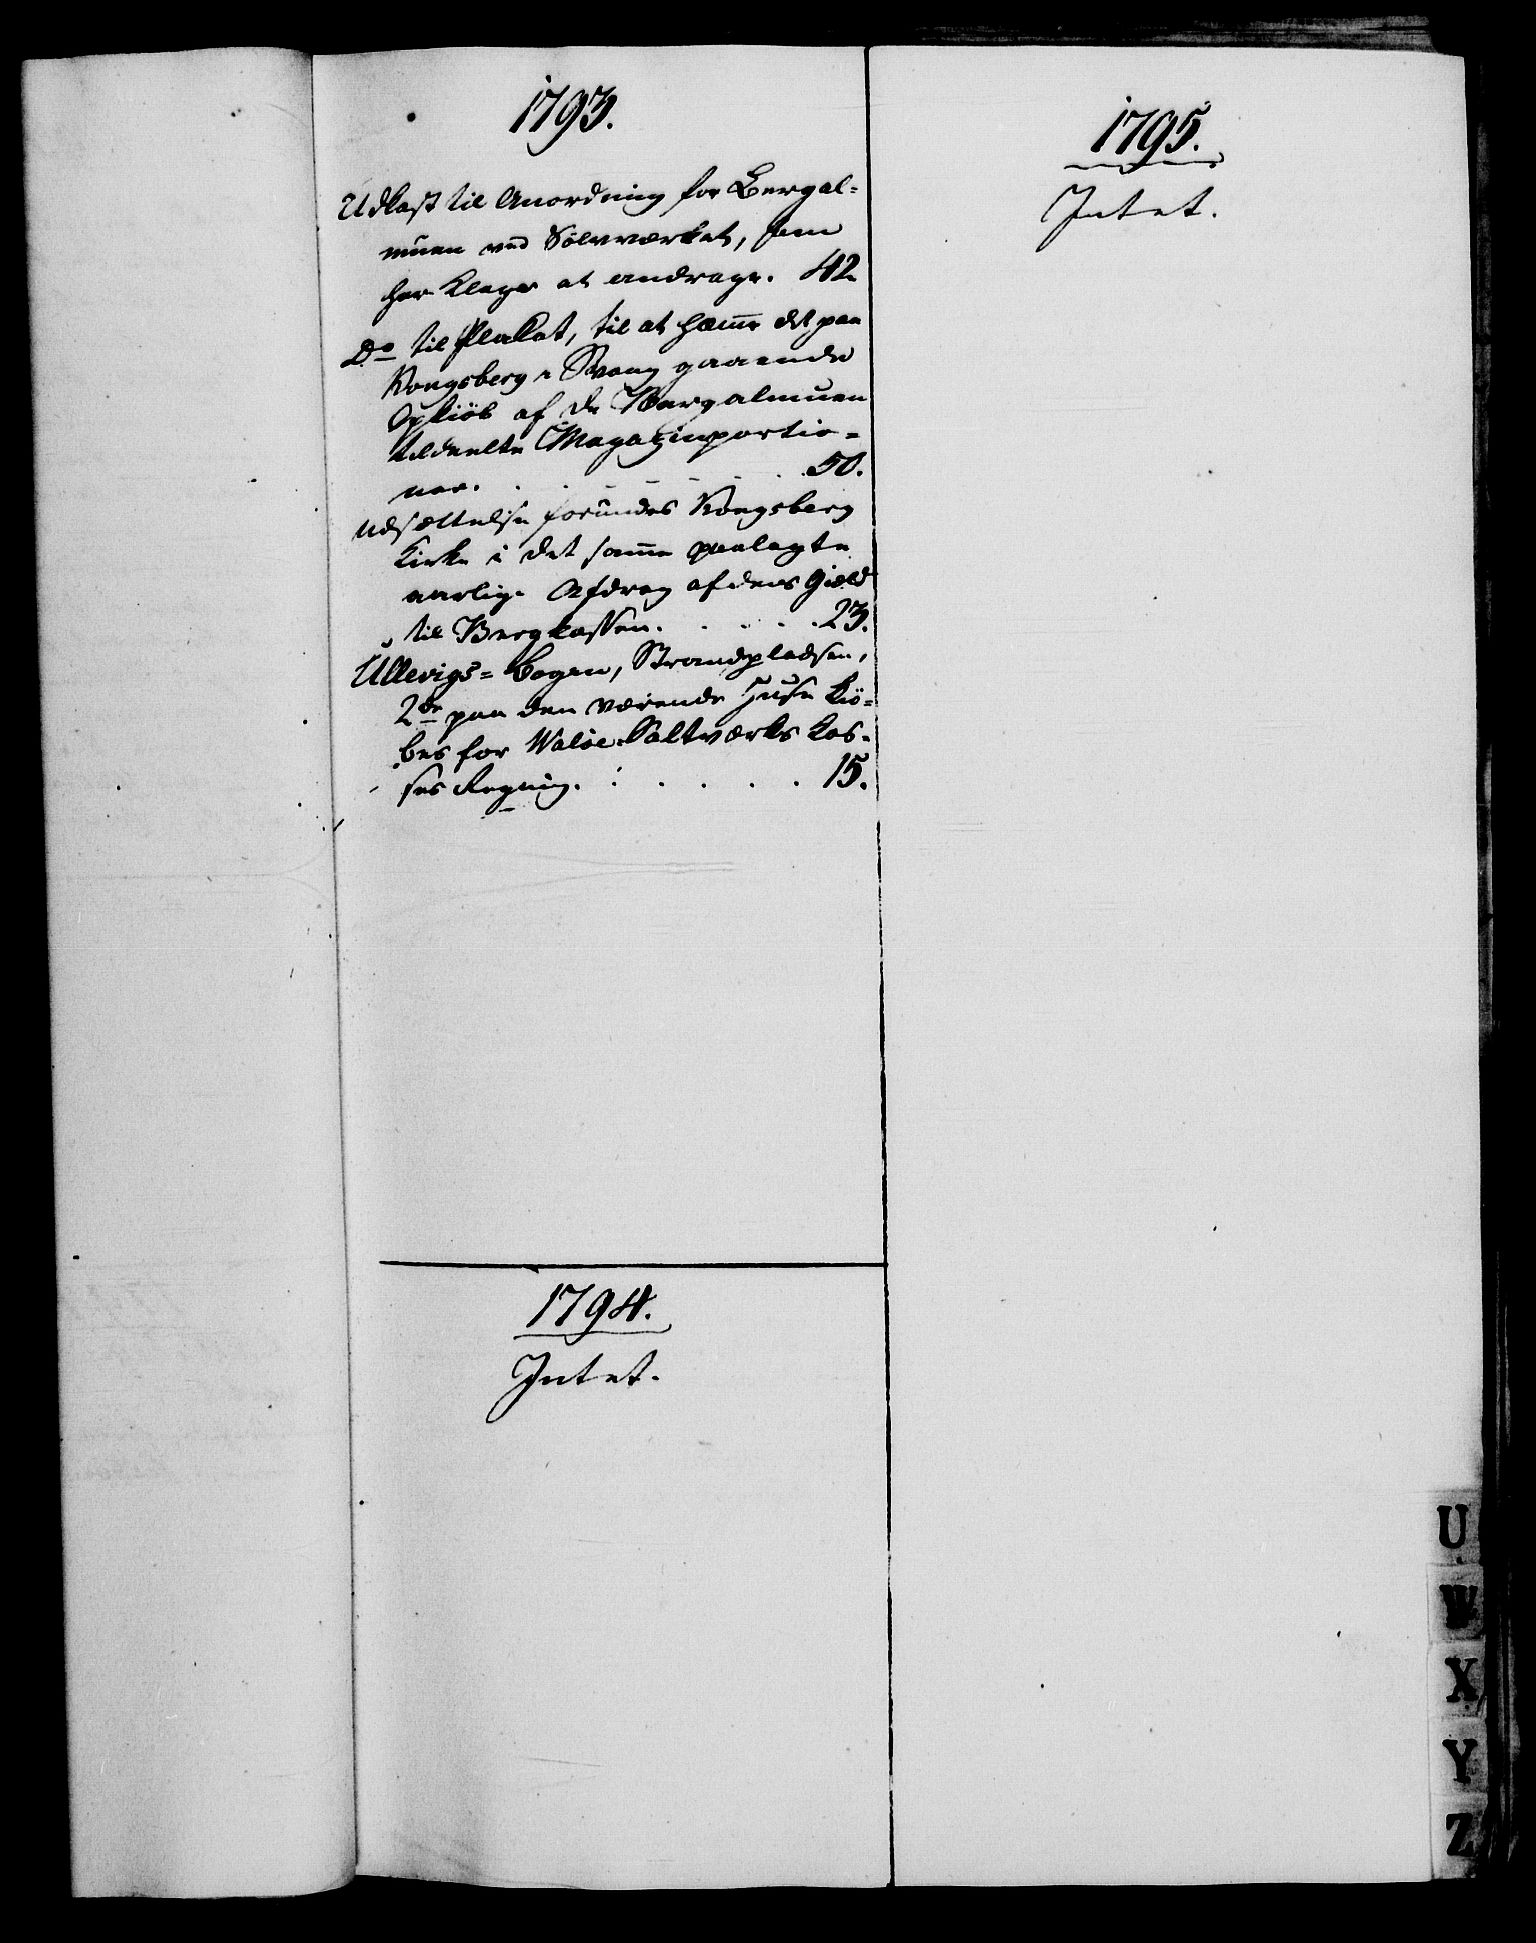 1793.
Udkast til Anordning for Bergal=
muen ved Sølvværket, som
har Klage at andrage. 42.
Do til Plakat, til at hæme det paa
Kongsberg i Svang gaaende
Opkiöb af de Bergalmuen
tildeelte Magazinportio=
ner. . . . . . . 50.
Udsættelse forundes Kongsberg
Kirke i det samme paalagte
aarlige Afdrag af dens Gield
til Bergkassen. . . . . . 23.
Ullevigs=bogen, Strandpladsen,
2de paa den værende Huse kiö=
bes for Waløe Saltværks Kas=
ses Regning. . . . . . . 15.
1794.
Intet.
1795.
Intet.
U
W
X
Y
Z